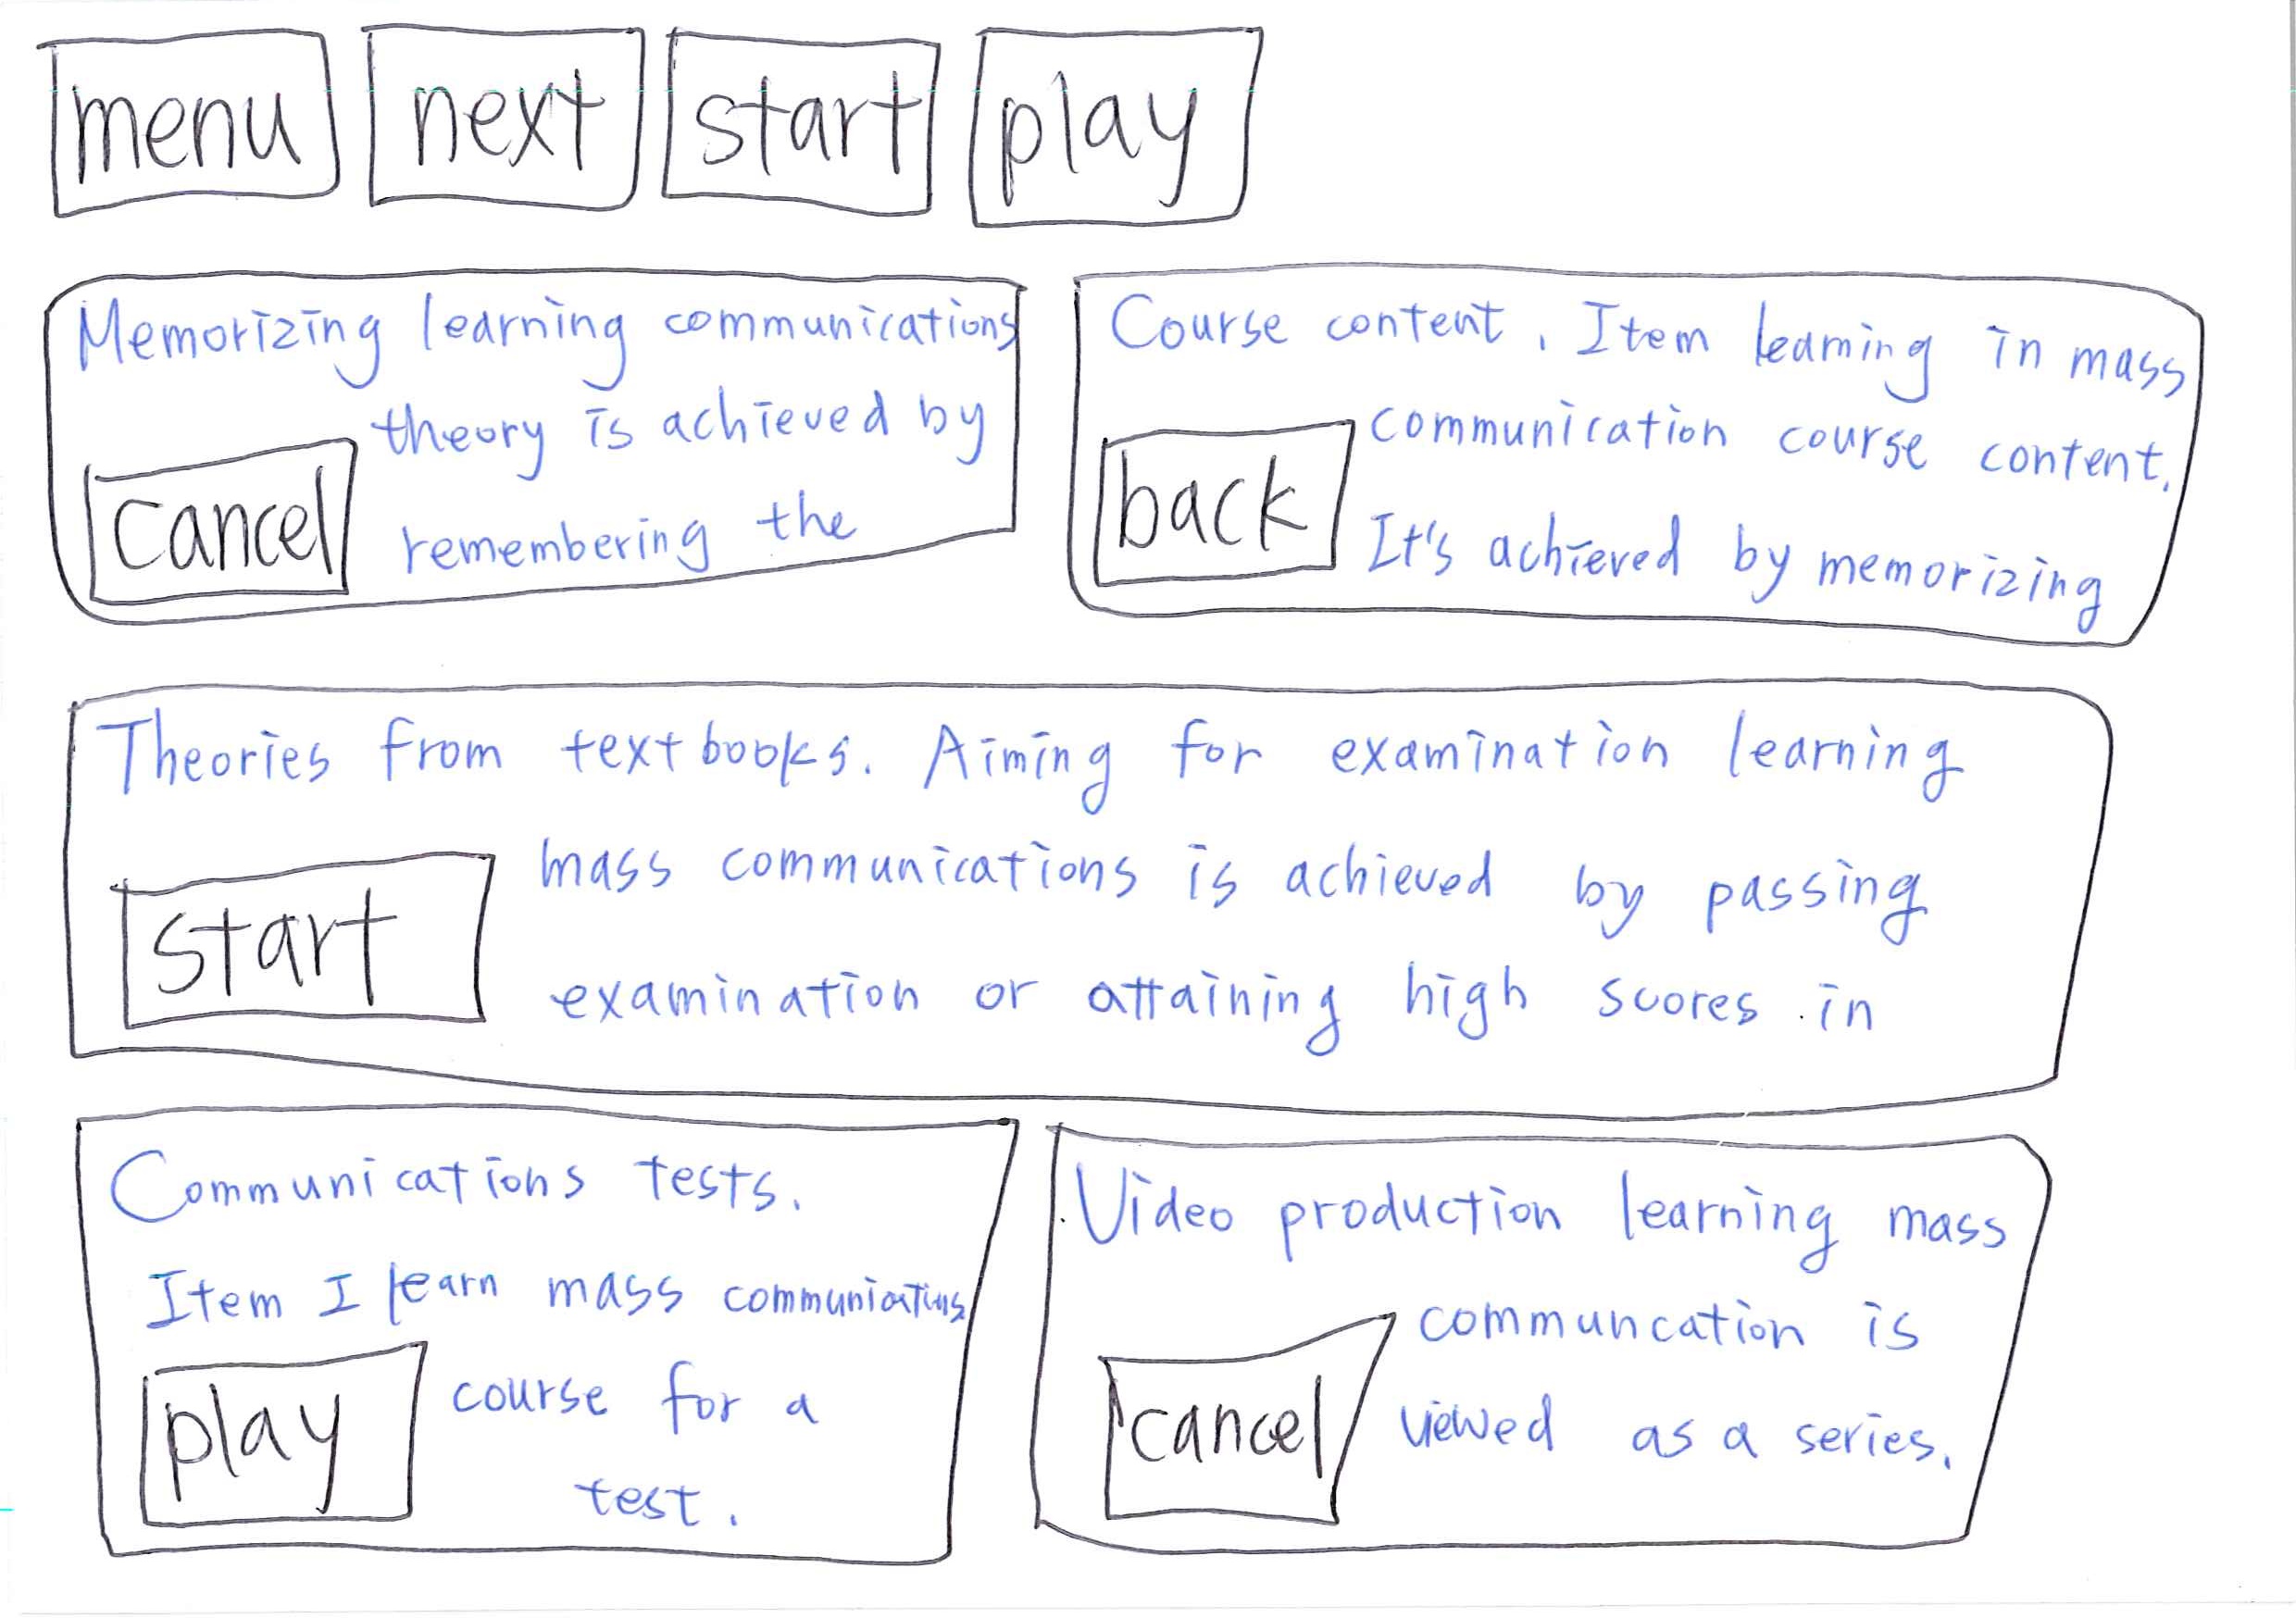 menu next start play
Memorizing learning communications
theory is achieved by
cancel
remembering the
Course content. Item learning in mass
communication course content.
back
It's achieved by memorizing
Theories from textbooks. Aiming for examination learning
mass communications is achieved by passing
start
examination or attaining high scores in
Communications tests.
Item I learn mass communications
play
course for a
test.
Video production learning mass
communcation is
cancel
viewed as a series.